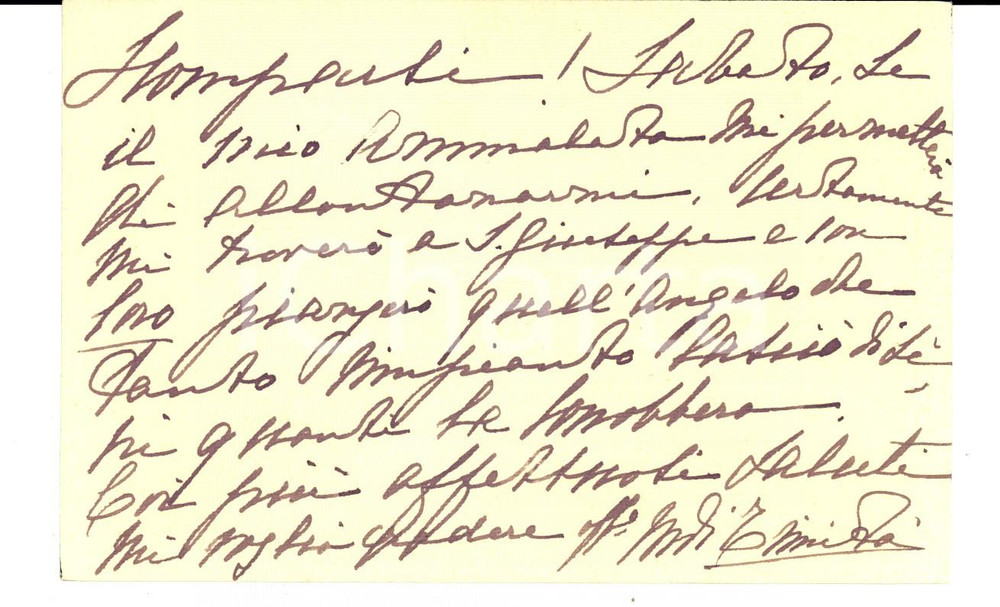 Scomparsi! Sabato, se
il mio Ammalato mi permetterà
di allontanarmi, certamente
mi troverò a S. Giuseppe e con
loro piangerò quell'Angelo che
tanto rimpianto lasciò di sè
in quanti la conobbero.
Coi più affettuosi saluti
mi voglia credere